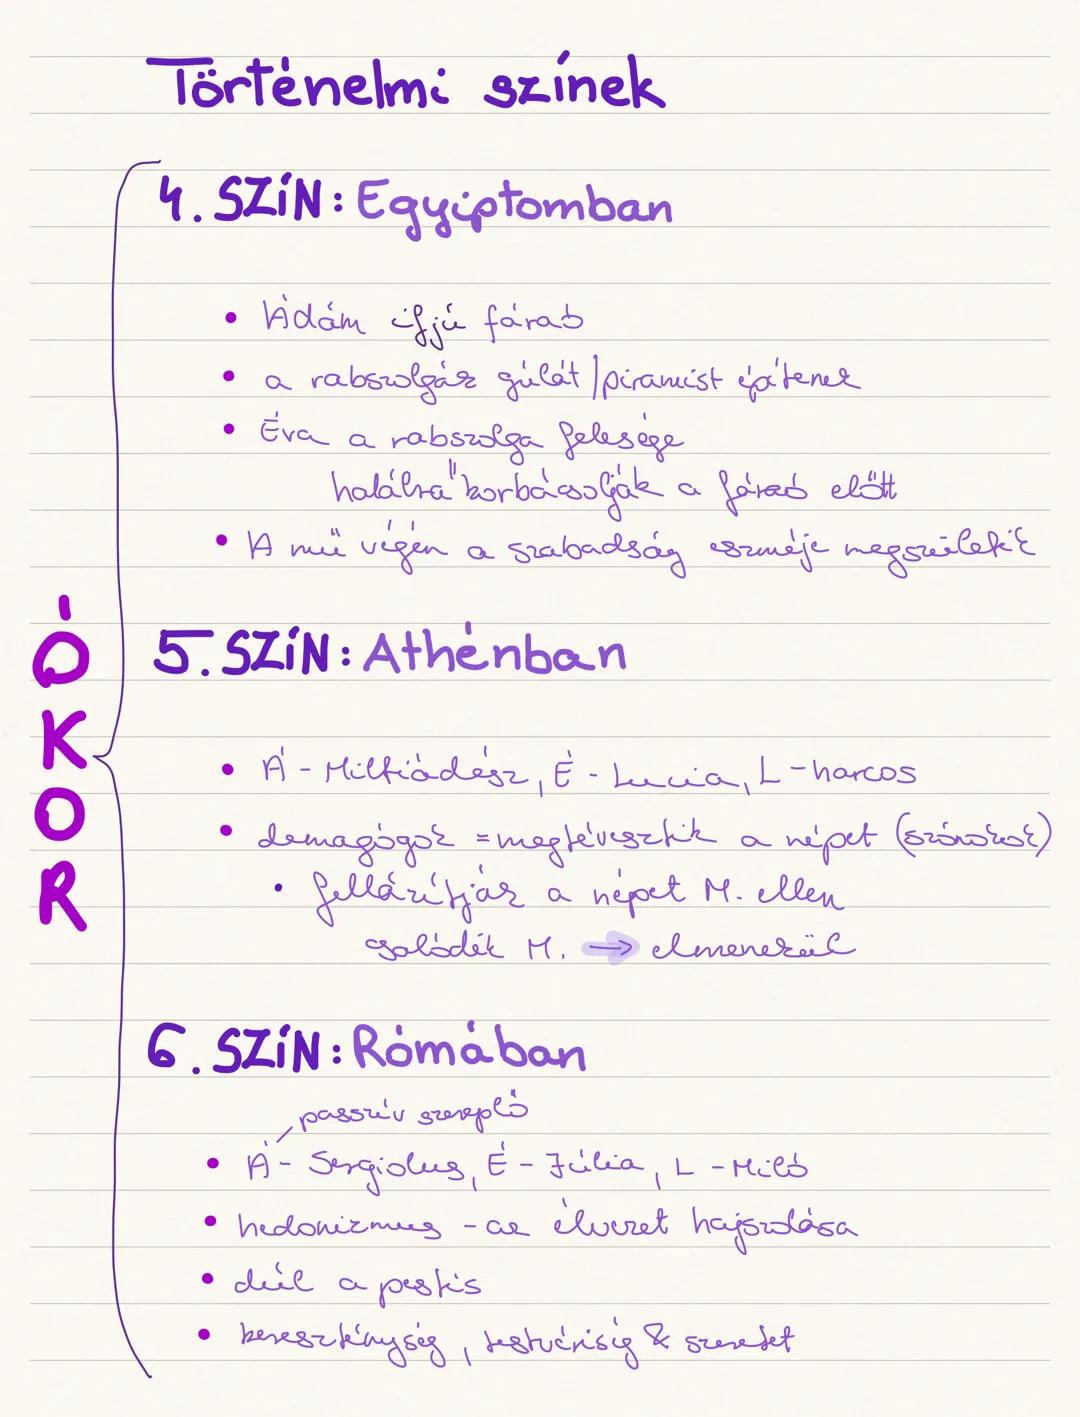 Történelmi színek
4. SZÍN: Egyiptomban
• Ádám ifjú fáraó
• a rabszolgák gúlát/piramist építenek
• Éva a rabszolga felesége
halálra korbácsolják a fáraó előtt
• A mű végén a szabadság eszméje megszületik
ÓKOR
5. SZÍN: Athénban
• Á - Miltiádész, É - Lucia, L - harcos
• demagógok = megtévesztik a népet (szónokok)
• fellázítják a népet M. ellen
csalódik M. → elmenekül
6. SZÍN: Rómában
passzív szereplő
• Á - Sergiolus, É - Júlia, L - Miló
• hedonizmus - az élvezet hajszolása
• dúl a pestis
• kereszténység, testvériség & szeretet